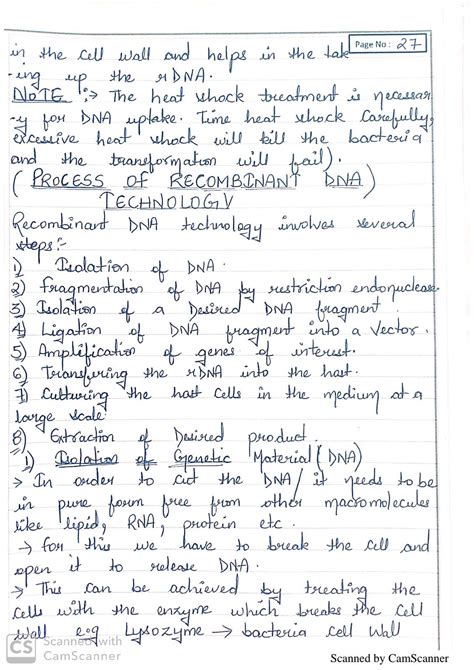 Page No: 27
in the cell wall and helps in the tak
-ing up the rDNA.
NOTE :→ The heat shock treatment is necessar
-y for DNA uptake. Time heat shock carefully,
excessive heat shock will kill the bacteria
and the transformation will fail).
(PROCESS OF RECOMBINANT DNA)
TECHNOLOGY
Recombinant DNA technology involves several
steps:-
1) Isolation of DNA.
2) fragmentation of DNA by restriction endonuclease
3) Isolation of a Desired DNA fragment.
4) Ligation of DNA fragment into a Vector.
5) Amplification of genes of interest.
6) Transfering the rDNA into the host.
7) Culturing the host cells in the medium at a
large scale
8) Extraction of Desired product.
1) Isolation of Genetic Material (DNA)
→ In order to cut the DNA/ it needs to be
in pure form free from other macromolecules
like lipid, RNA, protein etc.
→ for this we have to break the cell and
open it to release DNA.
→ This can be achieved by treating the
cells with the enzyme which breaks the cell
wall e.g Lysozyme → bacteria cell wall
CS Scanned with
CamScanner
Scanned by CamScanner